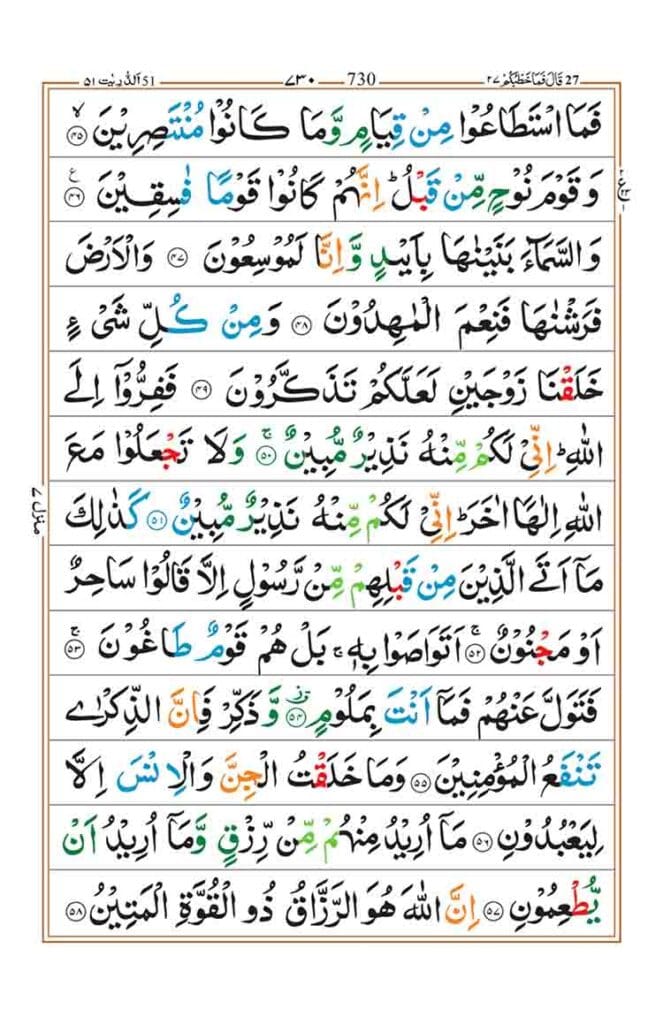 27 قَالَ فَمَا خَطْبُكُمْ ٢٧
730 ٧٣٠
51 اَلذّٰرِيٰت ٥١
فَمَا اسْتَطَاعُوْا مِنْ قِيَامٍ وَّمَا كَانُوْا مُنْتَصِرِيْنَ ۙ‏﴿۴۵﴾
وَ قَوْمَ نُوْحٍ مِّنْ قَبْلُ ؕ اِنَّهُمْ كَانُوْا قَوْمًا فٰسِقِيْنَ ﴿۴۶﴾ ع
وَ السَّمَآءَ بَنَيْنٰهَا بِاَيْىدٍ وَّ اِنَّا لَمُوْسِعُوْنَ ﴿۴۷﴾ وَ الْاَرْضَ
فَرَشْنٰهَا فَنِعْمَ الْمٰهِدُوْنَ ﴿۴۸﴾ وَ مِنْ كُلِّ شَیْءٍ
خَلَقْنَا زَوْجَيْنِ لَعَلَّكُمْ تَذَكَّرُوْنَ ﴿۴۹﴾ فَفِرُّوْۤا اِلَى
اللّٰهِ ؕ اِنِّیْ لَكُمْ مِّنْهُ نَذِيْرٌ مُّبِيْنٌ ۚ﴿۵۰﴾ وَ لَا تَجْعَلُوْا مَعَ
اللّٰهِ اِلٰهًا اٰخَرَ ؕ اِنِّیْ لَكُمْ مِّنْهُ نَذِيْرٌ مُّبِيْنٌ ﴿۵۱﴾ كَذٰلِكَ
مَاۤ اَتَى الَّذِيْنَ مِنْ قَبْلِهِمْ مِّنْ رَّسُوْلٍ اِلَّا قَالُوْا سَاحِرٌ
اَوْ مَجْنُوْنٌ ۚ﴿۵۲﴾ اَتَوَاصَوْا بِهٖ ۚ بَلْ هُمْ قَوْمٌ طَاغُوْنَ ۚ﴿۵۳﴾
فَتَوَلَّ عَنْهُمْ فَمَاۤ اَنْتَ بِمَلُوْمٍ ﴿۵۴﴾ وَّ ذَكِّرْ فَاِنَّ الذِّكْرٰى
تَنْفَعُ الْمُؤْمِنِيْنَ ﴿۵۵﴾ وَ مَا خَلَقْتُ الْجِنَّ وَ الْاِنْسَ اِلَّا
لِيَعْبُدُوْنِ ﴿۵۶﴾ مَاۤ اُرِيْدُ مِنْهُمْ مِّنْ رِّزْقٍ وَّ مَاۤ اُرِيْدُ اَنْ
يُّطْعِمُوْنِ ﴿۵۷﴾ اِنَّ اللّٰهَ هُوَ الرَّزَّاقُ ذُو الْقُوَّةِ الْمَتِيْنُ ﴿۵۸﴾
منزل ٧